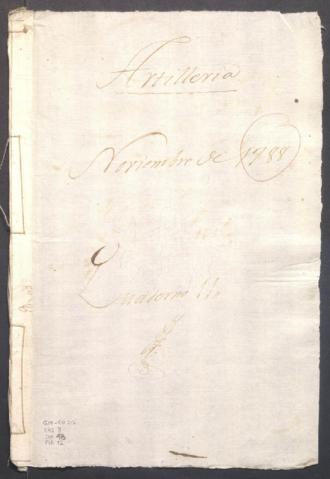 Artilleria
Noviembre de 1788
Quaderno 11